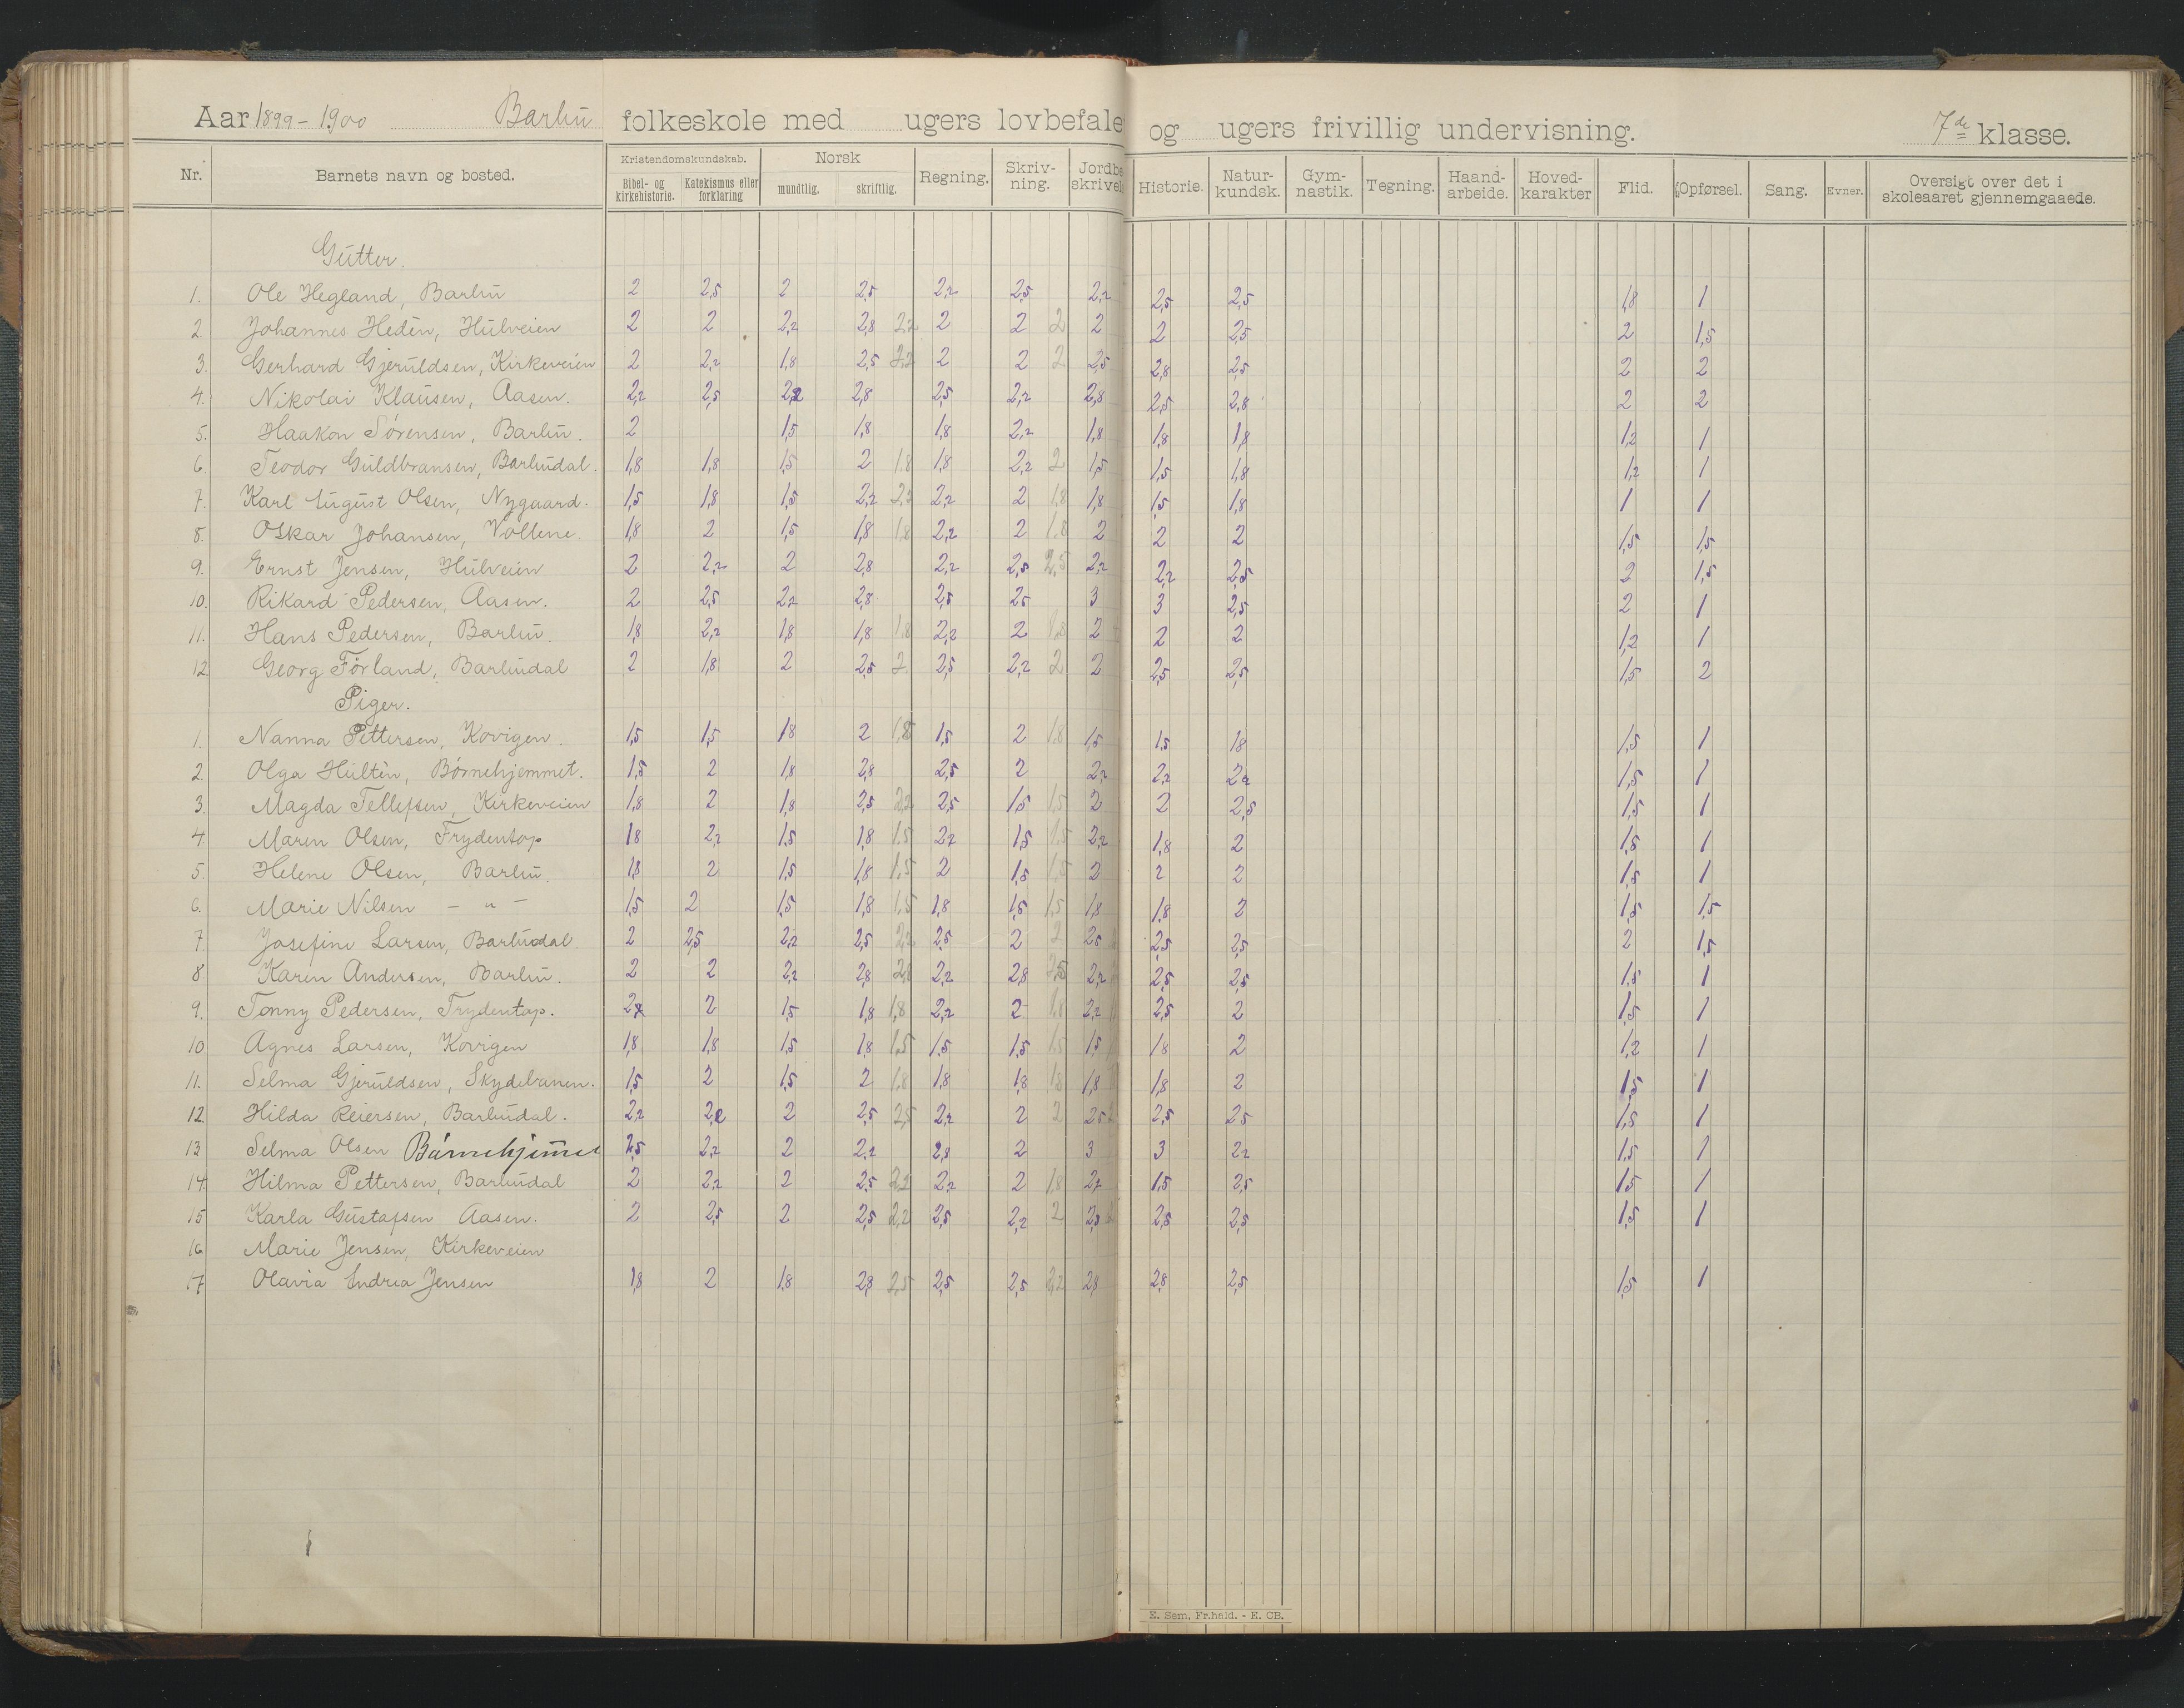 Aar 1899-1900 Barbu folkeskole med ugers lovbefale og ugers frivillig undervisning. 7de klasse.
Nr. Barnets navn og bosted. Kristendomskundskab. Bibel- og kirkehistorie. Katekismus eller forklaring Norsk mundtlig. skriftlig. Regning. Skriv-ning. Jordbe skrivel Historie. Natur-kundsk. Gym-nastik. Tegning. Haand-arbeide. Hoved-karakter Flid. Opførsel. Sang. Evner. Oversigt over det i skoleaaret gjennemgaaede.
Gutter.
1. Ole Hegland, Barbu 2 2,5 2 2,5 2,2 2,5 2,2 2,5 2,5 1,8 1
2 Johannes Hedèn, Hulveien 2 2 2,2 2,8 2,2 2 2 2 2 2 2,5 2 1,5
3. Gerhard Gjeruldsen, Kirkeveien 2 2,2 1,8 2,5 2,2 2 2 2 2,5 2,8 2,5 2 2
4. Nikolai Klausen, Aasen. 2,2 2,5 2,2 2,8 2,5 2,2 2,8 2,5 2,8 2 2
5. Haakon Sørensen, Barbu. 2 1,5 1,8 1,8 2,2 1,8 1,8 1,8 1,2 1
6. Teodor Guldbransen, Barbudal. 1,8 1,8 1,5 2 1,8 1,8 2,2 2 1,5 1,5 1,8 1,2 1
7. Karl August Olsen, Nygaard. 1,5 1,8 1,5 2,2 2,2 2,2 2 1,8 1,8 1,5 1,8 1 1
8. Oskar Johansen, Vollene. 1,8 2 1,5 1,8 1,8 2,2 2 1,8 2 2 2 1,5 1,5
9. Ernst Jensen, Hulveien 2 2,2 2 2,8 2,2 2,5 2,5 2,2 2,2 2,5 2 1,5
10. Rikard Pedersen, Aasen. 2 2,5 2,2 2,8 2,5 2,5 3 3 2,5 2 1
11. Hans Pedersen, Barbu. 1,8 2,2 1,8 1,8 1,8 2,2 2 1,8 2 2 2 1,2 1
12 Georg Førland, Barbudal 2 1,8 2 2,5 2 2,5 2,2 2 2 2,5 2,5 1,5 2
Piger.
1. Nanna Pettersen, Kovigen. 1,5 1,5 1,8 2 1,8 1,5 2 1,8 1,5 1,5 1,8 1,5 1
2. Olga Hultèn, Børnehjemmet. 1,5 2 1,8 2,8 2,5 2 2,2 2,2 2,2 1,5 1
3. Magda Tellefsen, Kirkeveien 1,8 2 1,8 2,5 2,2 2,5 1,5 1,5 2 2 2,5 1,5 1
4. Maren Olsen, Frydentop 1,8 2,2 1,5 1,8 1,5 2,2 1,5 1,5 2,2 1,8 2 1,5 1
5. Helene Olsen, Barbu. 1,8 2 1,5 1,8 1,5 2 1,5 1,5 2 2 2 1,5 1
6. Marie Nilsen - " - 1,5 2 1,5 1,8 1,5 1,8 1,5 1,5 1,8 1,8 2 1,5 1,5
7. Josefine Larsen, Barbudal. 2 2,5 2,2 2,5 2,2 2,5 2 2 2,5 2,5 2,5 2 1,5
8 Karen Andersen, Barbu. 2 2 2,2 2,8 2,8 2,2 2,8 2,5 2,2 2,5 2,5 1,5 1
9. Tonny Pedersen, Frydentop. 2,2 2 1,5 1,8 1,8 2,2 2 1,8 2,2 2,5 2 1,5 1
10 Agnes Larsen, Kovigen 1,8 1,8 1,5 1,8 1,5 1,5 1,5 1,5 1,5 1,8 2 1,2 1
11. Selma Gjeruldsen, Skydebanen. 1,5 2 1,5 2 1,8 1,8 1,8 1,8 1,8 1,8 2 1,5 1
12 Hilda Reiersen, Barbudal. 2,2 2,2 2 2,5 2,5 2,2 2 2 2,5 2,5 2,5 1,5 1
13 Selma Olsen Børnehjemmet 2,5 2,2 2 2,2 2,8 2 3 3 2,2 1,5 1
14. Hilma Pettersen, Barbudal 2 2,2 2 2,5 2,2 2,2 2 1,8 2,2 1,5 2,5 1,5 1
15 Karla Gustafsen Aasen. 2 2,5 2 2,5 2,2 2,5 2,2 2 2,8 2,8 2,5 1,5 1
16 Marie Jensen, Kirkeveien
17 Olavia Andrea Jensen 1,8 2 1,8 2,8 2,5 2,5 2,5 2,2 2,8 2,8 2,5 1,5 1
E. Sem, Fr.hald. - E. CB.